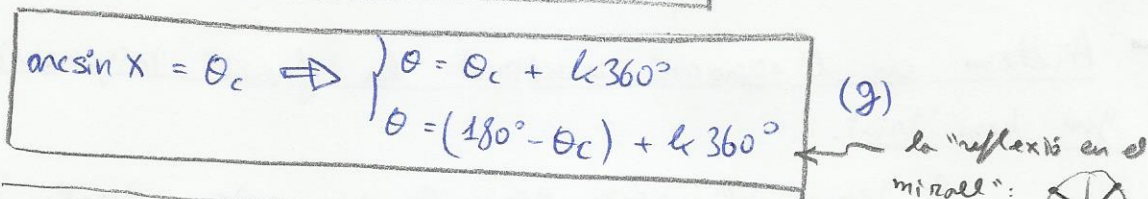 arcsin x = θc ⇒ { θ = θc + k 360°
θ = (180° - θc) + k 360°
(g)
la "reflexió en el
mirall":